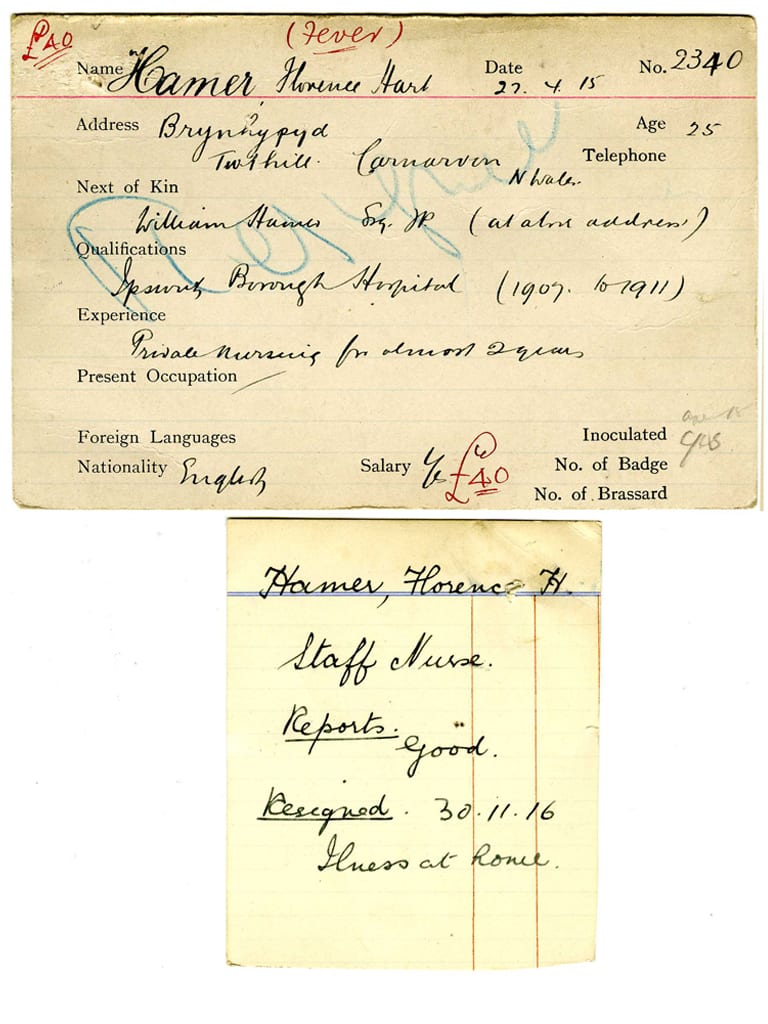 £40
(Fever)
Name Hamer Florence Hart Date 27. 4. 15 No. 2340
Address Brynhypyd Age 25
Twthill. Carnarvon Telephone
N Wales.
Next of Kin
William Hamer Esq. JP (at above address)
Qualifications
Ipswich Borough Hospital (1907. to 1911)
Experience
Private nursing for almost 2 years
Present Occupation
Resigned
Foreign Languages Inoculated
Nationality English Salary £40 No. of Badge
No. of Brassard
Hamer, Florence H.
Staff Nurse.
Reports.
Good.
Resigned. 30.11.16
Ilness at home.